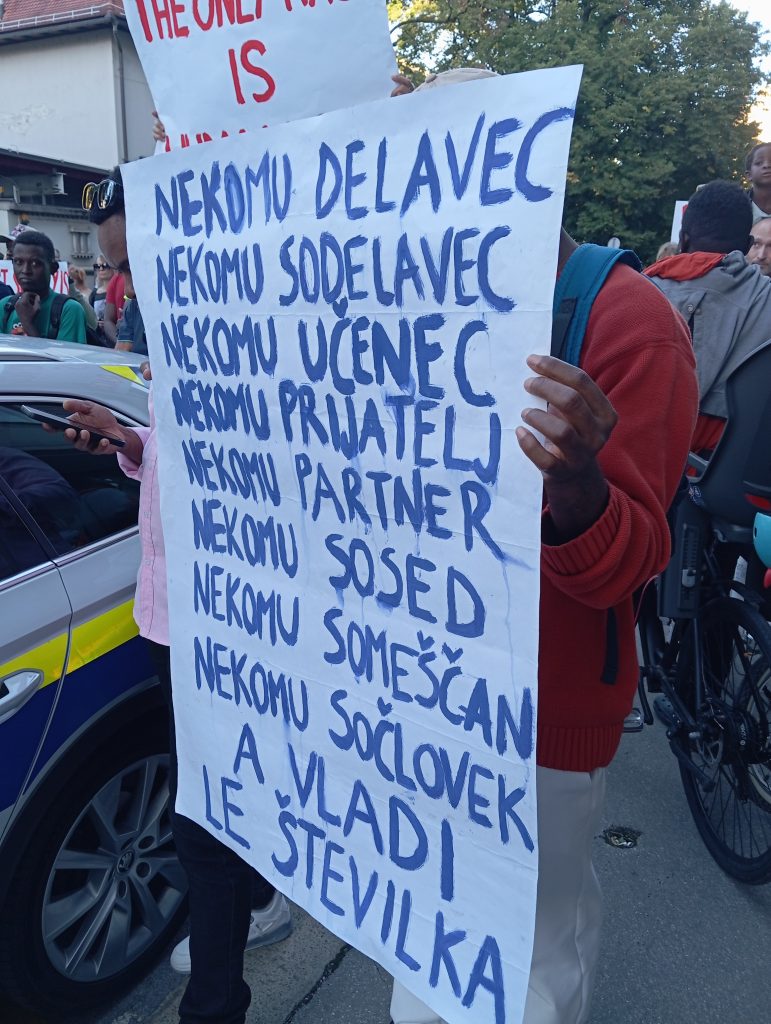 THE ONLY
IS
NEKOMU DELAVEC
NEKOMU SODELAVEC
NEKOMU UČENEC
NEKOMU PRIJATELJ
NEKOMU PARTNER
NEKOMU SOSED
NEKOMU SOMEŠČAN
NEKOMU SOČLOVEK
A VLADI
LE ŠTEVILKA